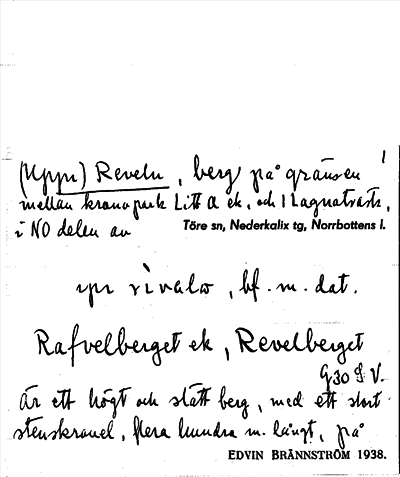 1
(Uppr) Reveln, berg på gränsen
mellan kronopark Litt A ek. och 1 Lagnaträsk,
i NO delen av Töre sn, Nederkalix tg, Norrbottens l.
ypr rivalω, bf. m. dat.
Rafvelberget ek, Revelberget
G30 S V.
är ett högt och slätt berg, med ett stort
stenskravel, flera hundra m. långt, på
EDVIN BRÄNNSTRÖM 1938.